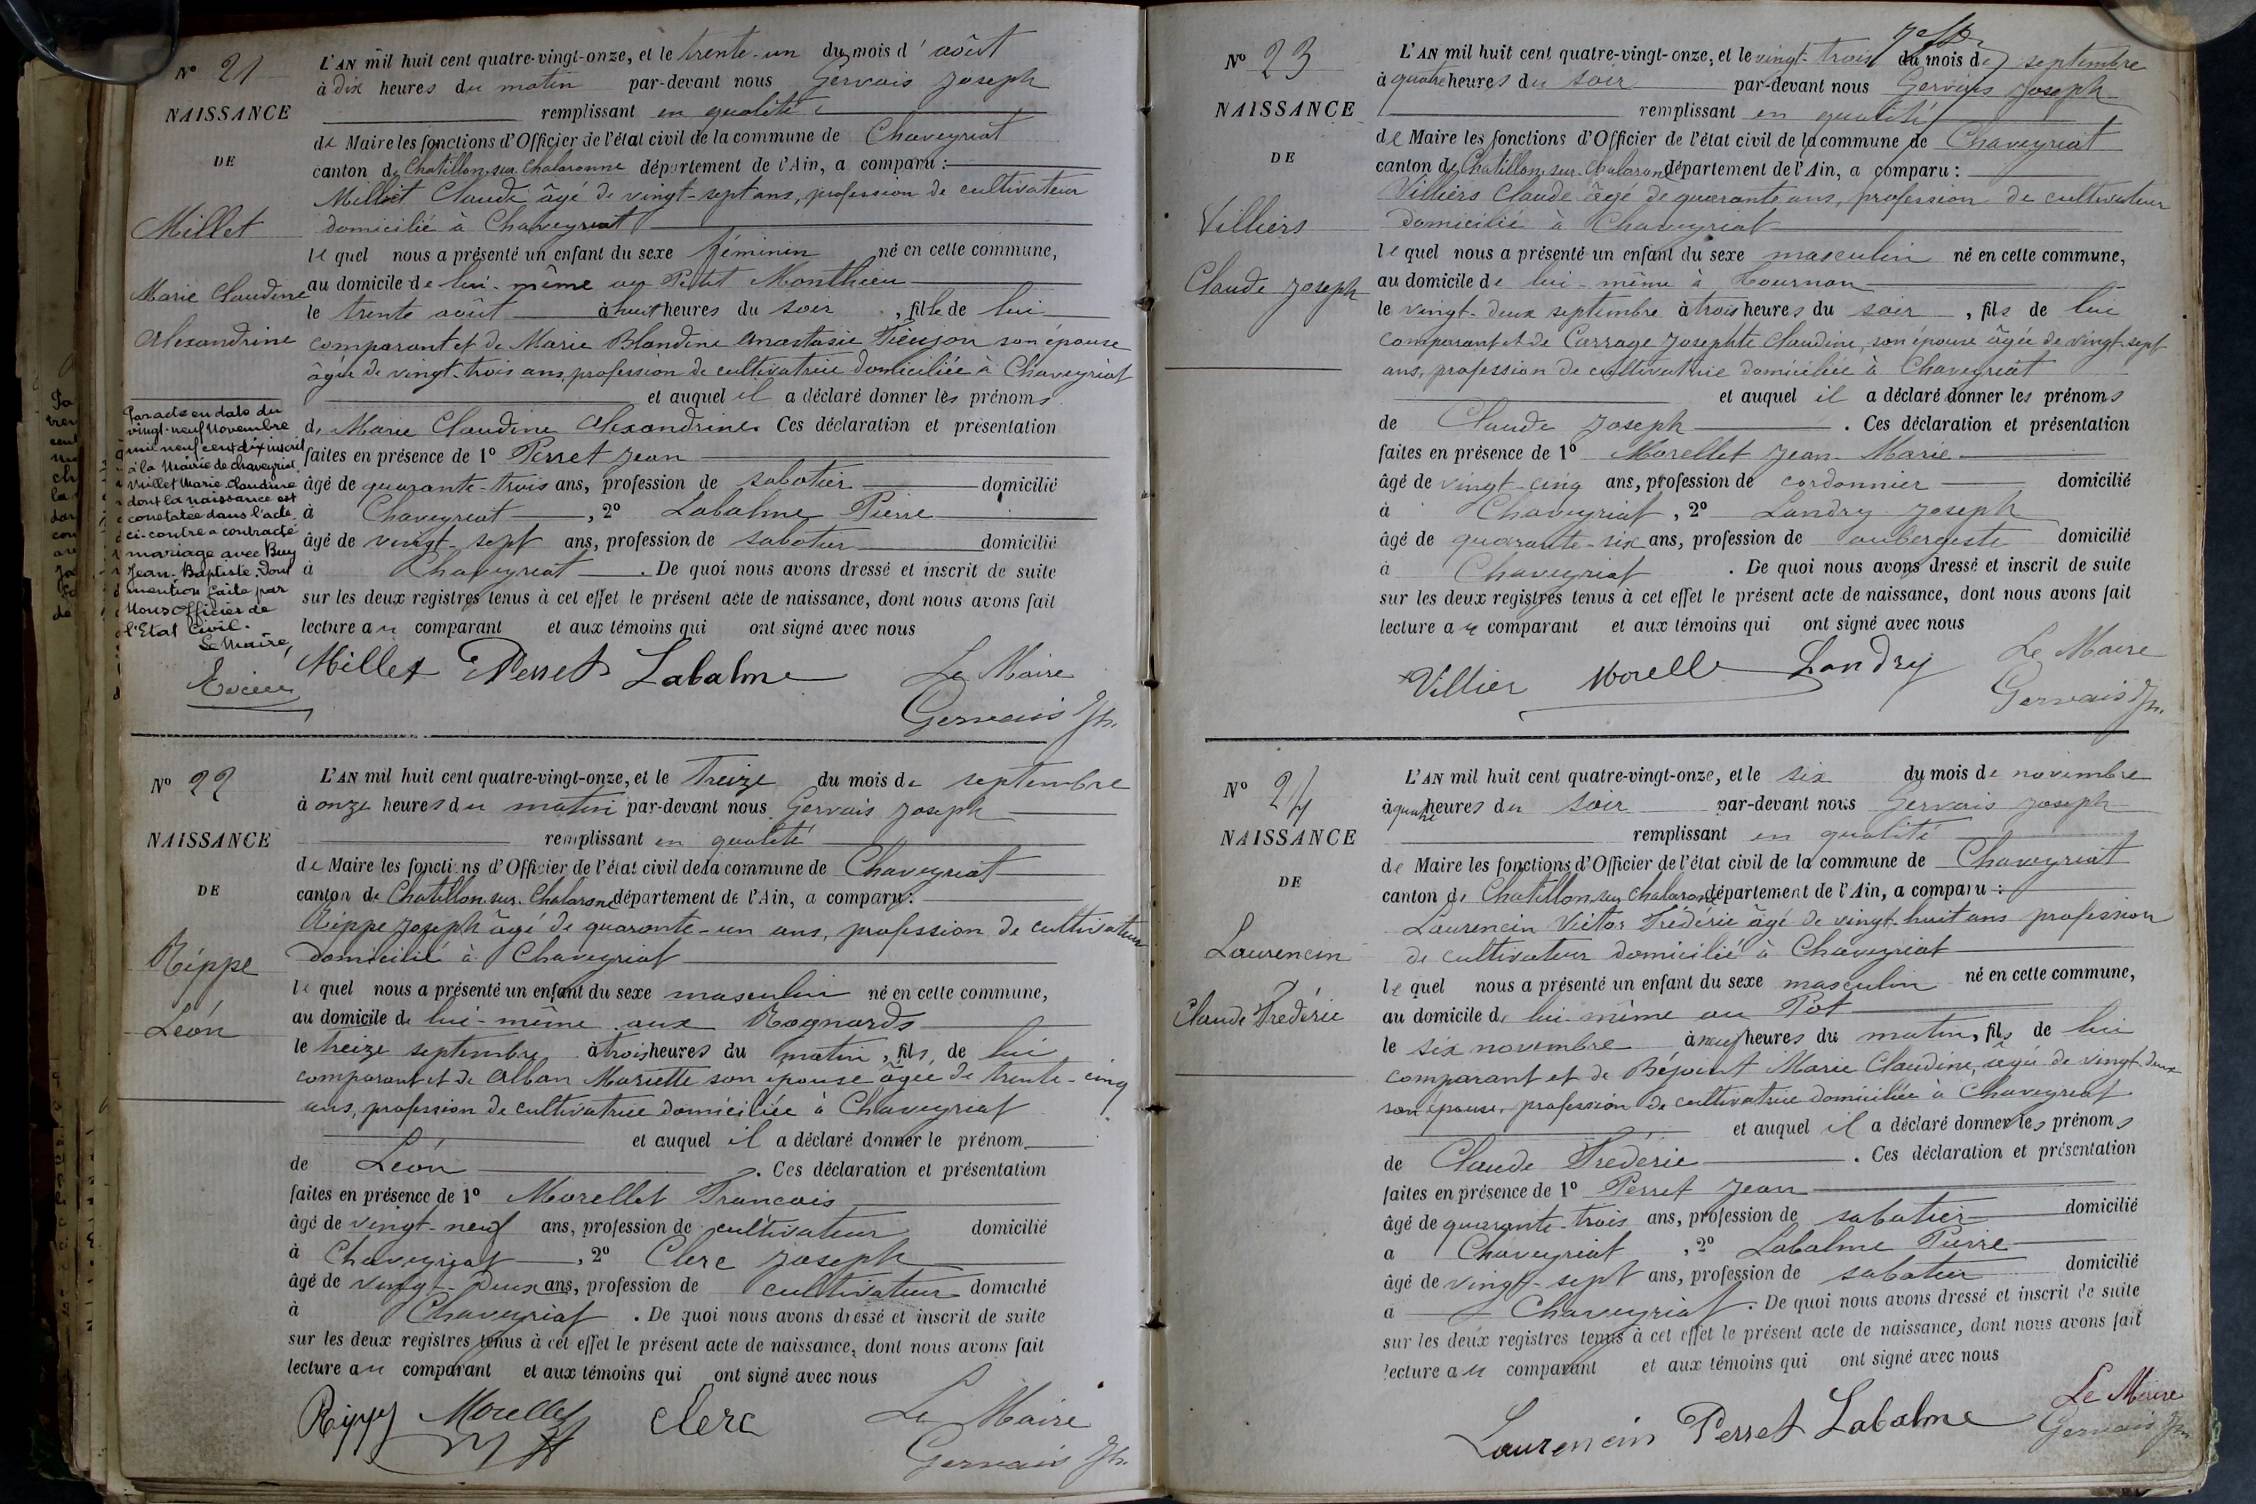 N° 21
NAISSANCE
DE
Millet
Marie Claudine
Alexandrine
L'AN mil huit cent quatre-vingt-onze, et le trente-un du mois d'août
à dix heures du matin par-devant nous Gervais Joseph
remplissant en qualité
de Maire les fonctions d'Officier de l'état civil de la commune de Chaveyriat
canton de Chatillon-sur-Chalaronne département de l'Ain, a comparu :
Millet Claude âgé de vingt-sept ans, profession de cultivateur
domicilié à Chaveyriat
lequel nous a présenté un enfant du sexe féminin né en cette commune,
au domicile de lui-même au Petit Monthieu
le trente août à huit heures du soir, fille de lui
comparant et de Marie Blandine Anastasie son épouse
âgée de vingt-trois ans, profession de cultivatrice domiciliée à Chaveyriat
et auquel il a déclaré donner les prénoms
de Marie Claudine Alexandrine. Ces déclaration et présentation
faites en présence de 1° Perret Jean
âgé de quarante-trois ans, profession de sabotier domicilié
à Chaveyriat, 2° Labalme Pierre
âgé de vingt-sept ans, profession de sabotier domicilié
à Chaveyriat. De quoi nous avons dressé et inscrit de suite
sur les deux registres tenus à cet effet le présent acte de naissance, dont nous avons fait
lecture au comparant et aux témoins qui ont signé avec nous
Millet Perret Labalme Le Maire
Gervais Jh.
Par acte en date du
vingt-neuf Novembre
mil neuf cent dix inscrit
à la Mairie de Chaveyriat
Millet Marie Claudine
dont la naissance est
constatée dans l'acte
ci-contre a contracté
mariage avec Buy
Jean-Baptiste. Dont
mention faite par
Nous Officier de
l'Etat Civil.
Le Maire,
N° 22
NAISSANCE
DE
Réppe
Léon
L'AN mil huit cent quatre-vingt-onze, et le treize du mois de septembre
à onze heures du matin par-devant nous Gervais Joseph
remplissant en qualité
de Maire les fonctions d'Officier de l'état civil de la commune de Chaveyriat
canton de Chatillon-sur-Chalaronne département de l'Ain, a comparu :
Réppe Joseph âgé de quarante-un ans, profession de cultivateur
domicilié à Chaveyriat
lequel nous a présenté un enfant du sexe masculin né en cette commune,
au domicile de lui-même aux Rognards
le treize septembre à trois heures du matin, fils de lui
comparant et de Alban Mariette son épouse âgée de trente-cinq
ans, profession de cultivatrice domiciliée à Chaveyriat
et auquel il a déclaré donner le prénom
de Léon. Ces déclaration et présentation
faites en présence de 1° Morellet Francois
âgé de vingt-neuf ans, profession de cultivateur domicilié
à Chaveyriat, 2° Clerc Joseph
âgé de vingt-deux ans, profession de cultivateur domicilié
à Chaveyriat. De quoi nous avons dressé et inscrit de suite
sur les deux registres tenus à cet effet le présent acte de naissance, dont nous avons fait
lecture au comparant et aux témoins qui ont signé avec nous
Morellet Clerc Le Maire
Gervais Jh.
N° 23
NAISSANCE
DE
Villiers
Claude Joseph
L'AN mil huit cent quatre-vingt-onze, et le vingt-trois du mois de septembre
à quatre heures du soir par-devant nous Gervais Joseph
remplissant en qualité
de Maire les fonctions d'Officier de l'état civil de la commune de Chaveyriat
canton de Chatillon-sur-Chalaronne département de l'Ain, a comparu :
Villiers Claude âgé de quarante ans, profession de cultivateur
domicilié à Chaveyriat
lequel nous a présenté un enfant du sexe masculin né en cette commune,
au domicile de lui-même à Tournon
le vingt-deux septembre à trois heures du soir, fils de lui
comparant et de Carrage Josephte Claudine, son épouse âgée de vingt-sept
ans, profession de cultivatrice domiciliée à Chaveyriat
et auquel il a déclaré donner les prénoms
de Claude Joseph. Ces déclaration et présentation
faites en présence de 1° Morellet Jean-Marie
âgé de vingt-cinq ans, profession de cordonnier domicilié
à Chaveyriat, 2° Landry Joseph
âgé de quarante-six ans, profession de aubergiste domicilié
à Chaveyriat. De quoi nous avons dressé et inscrit de suite
sur les deux registres tenus à cet effet le présent acte de naissance, dont nous avons fait
lecture au comparant et aux témoins qui ont signé avec nous
Villier Morelle Landry Le Maire
Gervais Jh.
N° 24
NAISSANCE
DE
Laurencin
Claude Frédéric
L'AN mil huit cent quatre-vingt-onze, et le six du mois de novembre
à quatre heures du soir par-devant nous Gervais Joseph
remplissant en qualité
de Maire les fonctions d'Officier de l'état civil de la commune de Chaveyriat
canton de Chatillon-sur-Chalaronne département de l'Ain, a comparu :
Laurencin Victor Frédéric âgé de vingt-huit ans profession
de cultivateur domicilié à Chaveyriat
lequel nous a présenté un enfant du sexe masculin né en cette commune,
au domicile de lui-même au Pot
le six novembre à neuf heures du matin, fils de lui
comparant et de Béjoint Marie Claudine, âgée de vingt-deux
son épouse, profession de cultivatrice domiciliée à Chaveyriat
et auquel il a déclaré donner les prénoms
de Claude Frédéric. Ces déclaration et présentation
faites en présence de 1° Perret Jean
âgé de quarante-trois ans, profession de sabotier domicilié
à Chaveyriat, 2° Labalme Pierre
âgé de vingt-sept ans, profession de sabotier domicilié
à Chaveyriat. De quoi nous avons dressé et inscrit de suite
sur les deux registres tenus à cet effet le présent acte de naissance, dont nous avons fait
lecture au comparant et aux témoins qui ont signé avec nous
Laurencin Perret Labalme Le Maire
Gervais Jh.